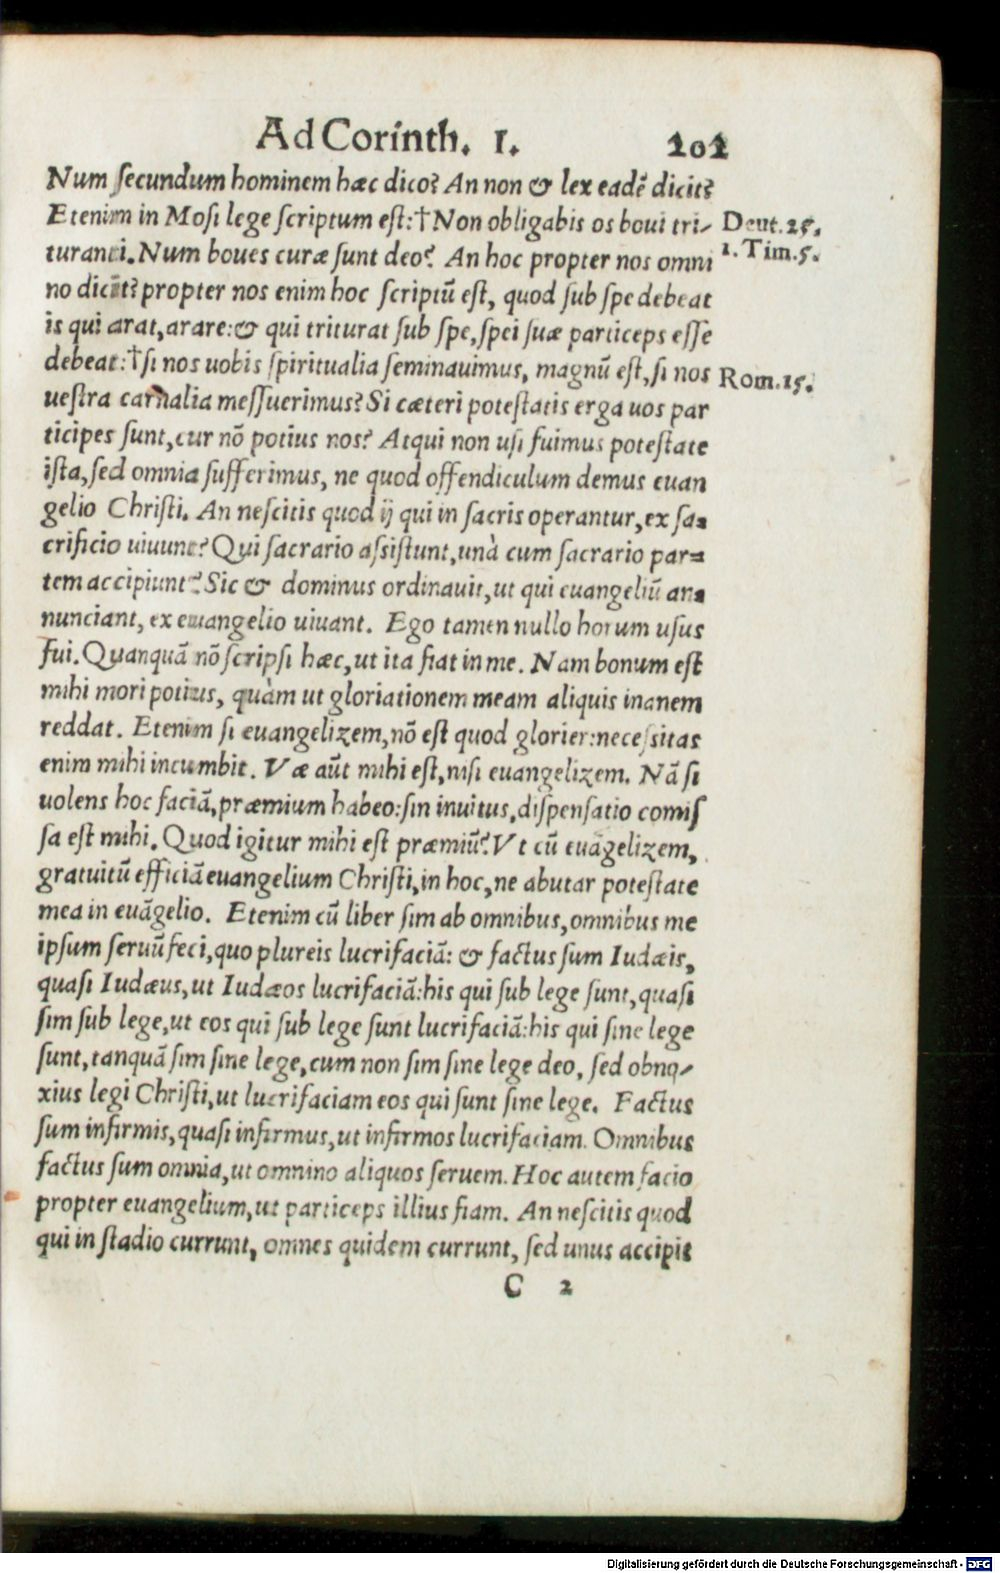 Ad Corinth. I. 101
Num ſecundum hominem hæc dico? An non & lex eadē dicit?
Etenim in Moſi lege ſcriptum eſt:†Non obligabis os boui tri- Deut.25.
turanti. Num boues curæ ſunt deo? An hoc propter nos omni 1. Tim.5.
no dicit? propter nos enim hoc ſcriptū eſt, quod ſub ſpe debeat
is qui arat, arare:& qui triturat ſub ſpe, ſpei ſuæ particeps eſſe
debeat:†ſi nos uobis ſpiritualia ſeminauimus, magnū eſt, ſi nos Rom.15.
ueſtra carnalia meſſuerimus? Si cæteri poteſtatis erga uos par
ticipes ſunt, cur nō potius nos? Atqui non uſi fuimus poteſtate
iſta, ſed omnia ſufferimus, ne quod offendiculum demus euan
gelio Chriſti. An neſcitis quod ij qui in ſacris operantur, ex ſa=
crificio uiuunt? Qui ſacrario aſsiſtunt, unà cum ſacrario par=
tem accipiunt? Sic & dominus ordinauit, ut qui euangeliū an=
nunciant, ex euangelio uiuant. Ego tamen nullo horum uſus
fui. Quanquā nō ſcripſi hæc, ut ita fiat in me. Nam bonum eſt
mihi mori potius, quàm ut gloriationem meam aliquis inanem
reddat. Etenim ſi euangelizem, nō eſt quod glorier: neceſsitas
enim mihi incumbit. Væ aūt mihi eſt, niſi euangelizem. Nā ſi
uolens hoc faciā, præmium habeo: ſin inuitus, diſpenſatio comiſ
ſa eſt mihi. Quod igitur mihi eſt præmiū? Vt cū euāgelizem,
gratuitū efficiā euangelium Chriſti, in hoc, ne abutar poteſtate
mea in euāgelio. Etenim cū liber ſim ab omnibus, omnibus me
ipſum ſeruū feci, quo plureis lucrifaciā: & factus ſum Iudæis,
quaſi Iudæus, ut Iudæos lucrifaciā: his qui ſub lege ſunt, quaſi
ſim ſub lege, ut eos qui ſub lege ſunt lucrifaciā: his qui ſine lege
ſunt, tanquā ſim ſine lege, cum non ſim ſine lege deo, ſed obno-
xius legi Chriſti, ut lucrifaciam eos qui ſunt ſine lege. Factus
ſum infirmis, quaſi infirmus, ut infirmos lucrifaciam. Omnibus
factus ſum omnia, ut omnino aliquos ſeruem. Hoc autem facio
propter euangelium, ut particeps illius fiam. An neſcitis quod
qui in ſtadio currunt, omnes quidem currunt, ſed unus accipit
C 2
Digitalisierung gefördert durch die Deutsche Forschungsgemeinschaft - DFG